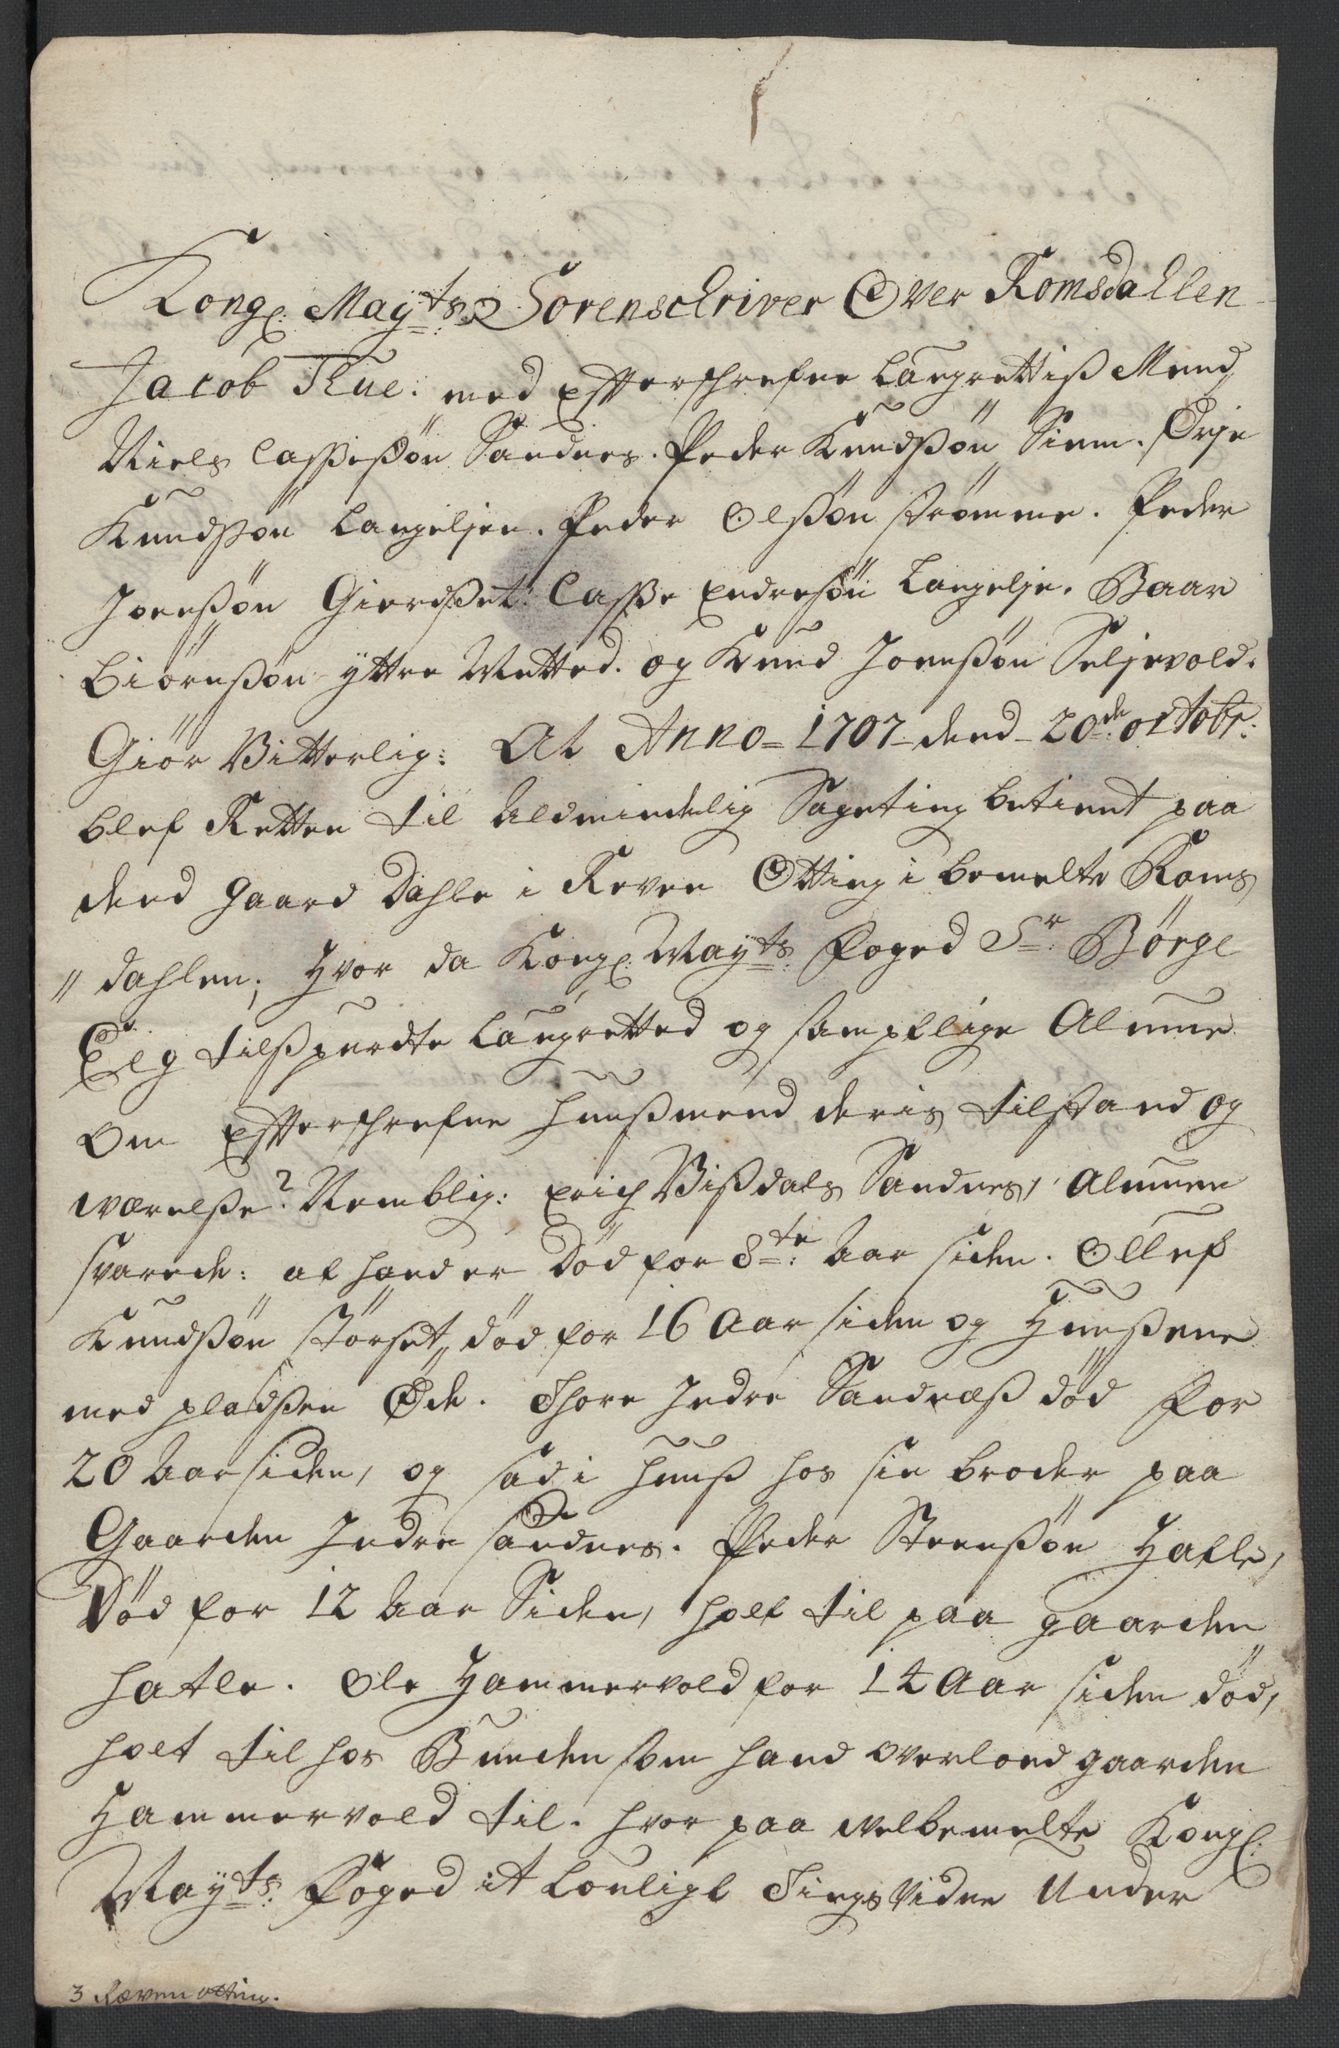 Kongl: May:ts Sorenschriver Over Romsdahlen
Jacob Thue: med Efterschrefne Laugrettis Mend,
Niels Lasseßøn Sandnes. Peder Knudßøn Siem. Ørje
Knudßøn Langeljen. Peder Olßøn Strømme. Peder
Joenßøn Gierdßet. Lasse Endresøn Langelje. Baar
Biørnßøn yttre Mitted. og Knud Joenßøn Seljevold.
Giør Vitterlig: At Anno = 1707 - dend - 20de octobr:
blef Retten til Aldmindelig Sageting betient paa
dend gaard Dahle i Reven Otting i bemelte Roms
"dahlen; Hvor da Kongl: May:ts Foged Sr. Børge
Elg tilspurdte Laugretted og samptlige Almue
Om Efterschrefne Huusmend deris tilstand og
værelse? Nemblig: Erich Vißdals Sandnes, Almuen
svarede: at hand er Død for 8te: Aar siden. Ollef
Knudßøn Størset, død for 16 Aar siden og Huusene
med pladsen Øde. Thore Indre Sandnæß død for
20 Aar siden, og sad i Huus hos sin broder paa
Gaarden Indre Sandnes. Peder Steenßøn Hatle,
Død for 12 Aar Siden, holt til paa gaarden
Hatle. Ole Hammervold for 14 Aar siden død,
holt til hos Bunden som hand overloed gaarden
Hammervold til. hvor paa velbemelte Kongl:
May:ts Foged it Louligt Tings Vidne Under
3 Ræven otting.